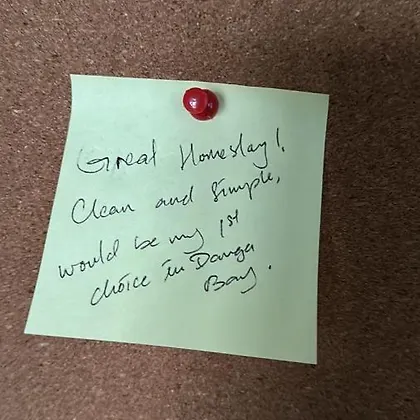 Great Homestay!
Clean and Simple,
would be my 1st
choice in Danga
Bay.